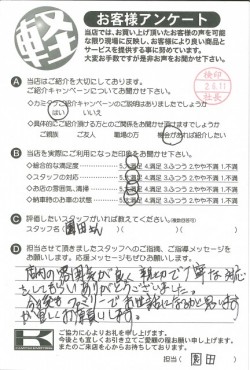 軽
お客様アンケート
当店では、お買い上げ頂いたお客様の声を可能
な限り現場に反映し、お客様により良い商品と
サービスを提供する事に努めています。
大変お手数ですが是非お声をお聞かせ下さい。
検印
2.6.11
社長
A 当店はご紹介を大切にしております。
ご紹介キャンペーンについてお聞かせ下さい。
◇カミタケご紹介キャンペーンのご説明はありましたでしょうか
はい いいえ
◇具体的にご紹介頂ける方とのご関係をお聞かせ頂けますでしょうか
ご親族 ご友人 職場の方 機会があれば紹介したい
B 当店を実際にご利用になった印象をお聞かせ下さい。
◇総合的な満足度 5.大満足 4.満足 3.ふつう 2.やや不満 1.不満
◇スタッフの対応 5.大満足 4.満足 3.ふつう 2.やや不満 1.不満
◇お店の雰囲気、清掃 5.大満足 4.満足 3.ふつう 2.やや不満 1.不満
◇納車時のお車の状態 5.大満足 4.満足 3.ふつう 2.やや不満 1.不満
C 評価したいスタッフがいれば教えてください。(複数回答可)
スタッフ名( 園田さん )
D 担当させて頂きましたスタッフへのご指摘、ご指導メッセージを
お願い致します。応援メッセージもぜひお願い致します!
店内の雰囲気が良く 親切で丁寧な対応
をしてもらいありがとうございました。
今後も ファミリーでお世話になるかと思います
が宜しくお願いします。
K
ご協力に心よりお礼を申し上げます。
今後とも宜しくお引き立てご愛顧の程お願い申し上げます。
またのご来店を心からお待ちしております。
担当( 園田 )